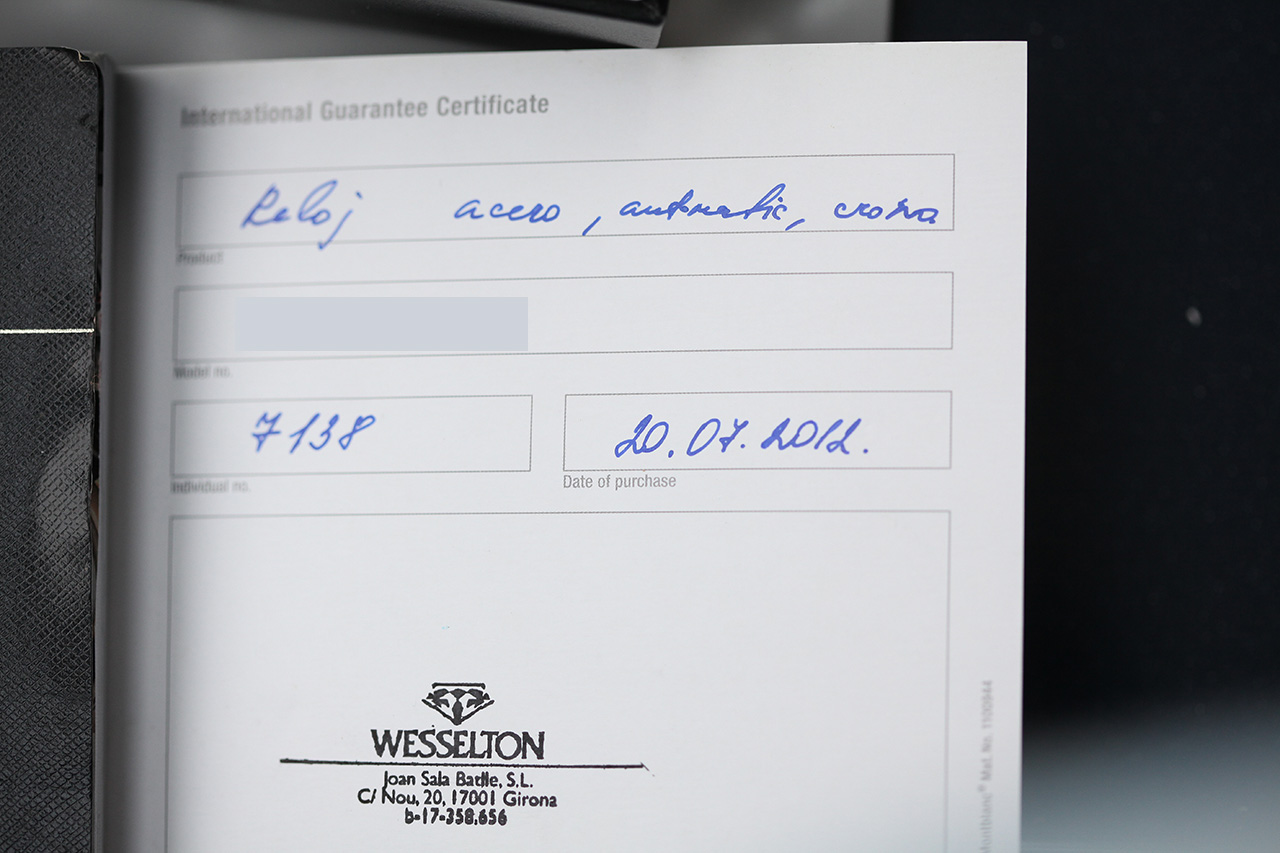 International Guarantee Certificate
Reloj acero, automatic, crono
Product
Model no.
7138
20.07.2012.
Individual no.
Date of purchase
WESSELTON
Joan Sala Batlle, S.L.
C/ Nou, 20, 17001 Girona
b-17-358.656
Montblanc® Mat. No. 1100944